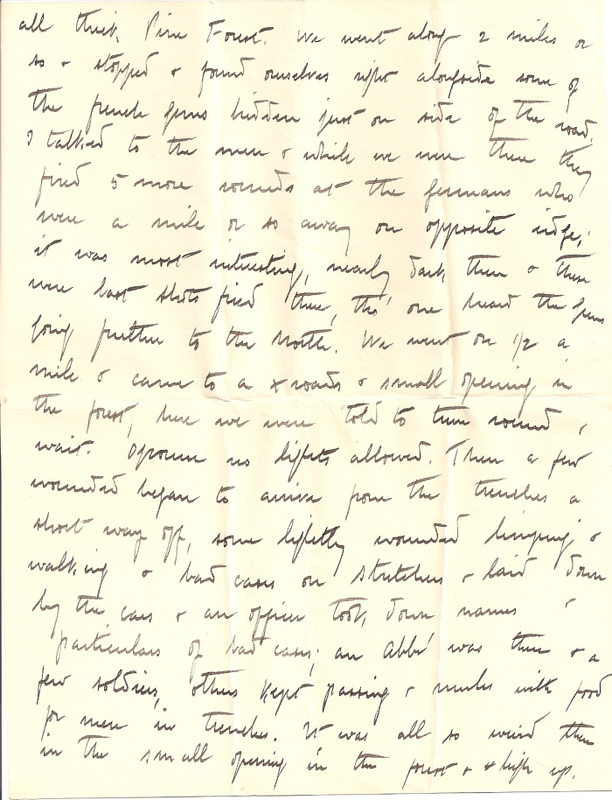 all thick Pine Forest. We went along 2 miles or
so & stopped & found ourselves right alongside some of
the french guns hidden just on side of the road.
I talked to the men & while we were there they
fired 5 more rounds at the germans who
were a mile or so away on opposite ridge;
it was most interesting, nearly dark then & these
were last shots fired there, tho' one heard the guns
going further to the North. We went on 1/2 a
mile & came to a x roads & small opening in
the forest, here we were told to turn round &
wait. Of course no lights allowed. Then a few
wounded began to arrive from the trenches a
short way off, some lightly wounded limping &
walking & bad cases on stretchers & laid down
by the cars & an officer took down names &
particulars of bad cases; an Abbé was there & a
few soldiers, others kept passing & mules with food
for men in trenches. It was all so weird there
in the small opening in the forest & high up.